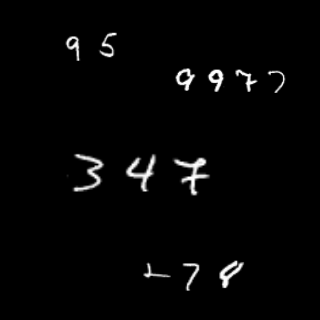 95
9977
347
+78